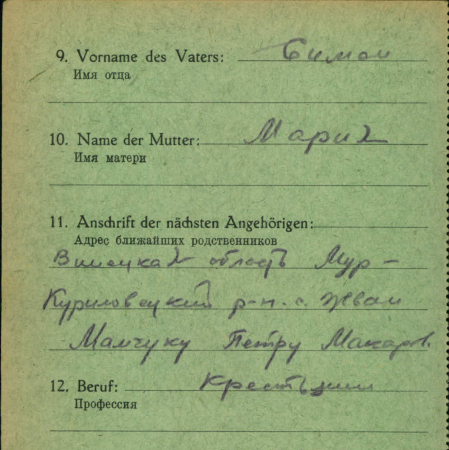 9. Vorname des Vaters: Симон
Имя отца
10. Name der Mutter: Мария
Имя матери
11. Anschrift der nächsten Angehörigen:
Адрес ближайших родственников
область Мур-
Куриловецкий р-н. с. Жван
Мамчуку Петру Макаров.
12. Beruf: Крестьянин
Профессия